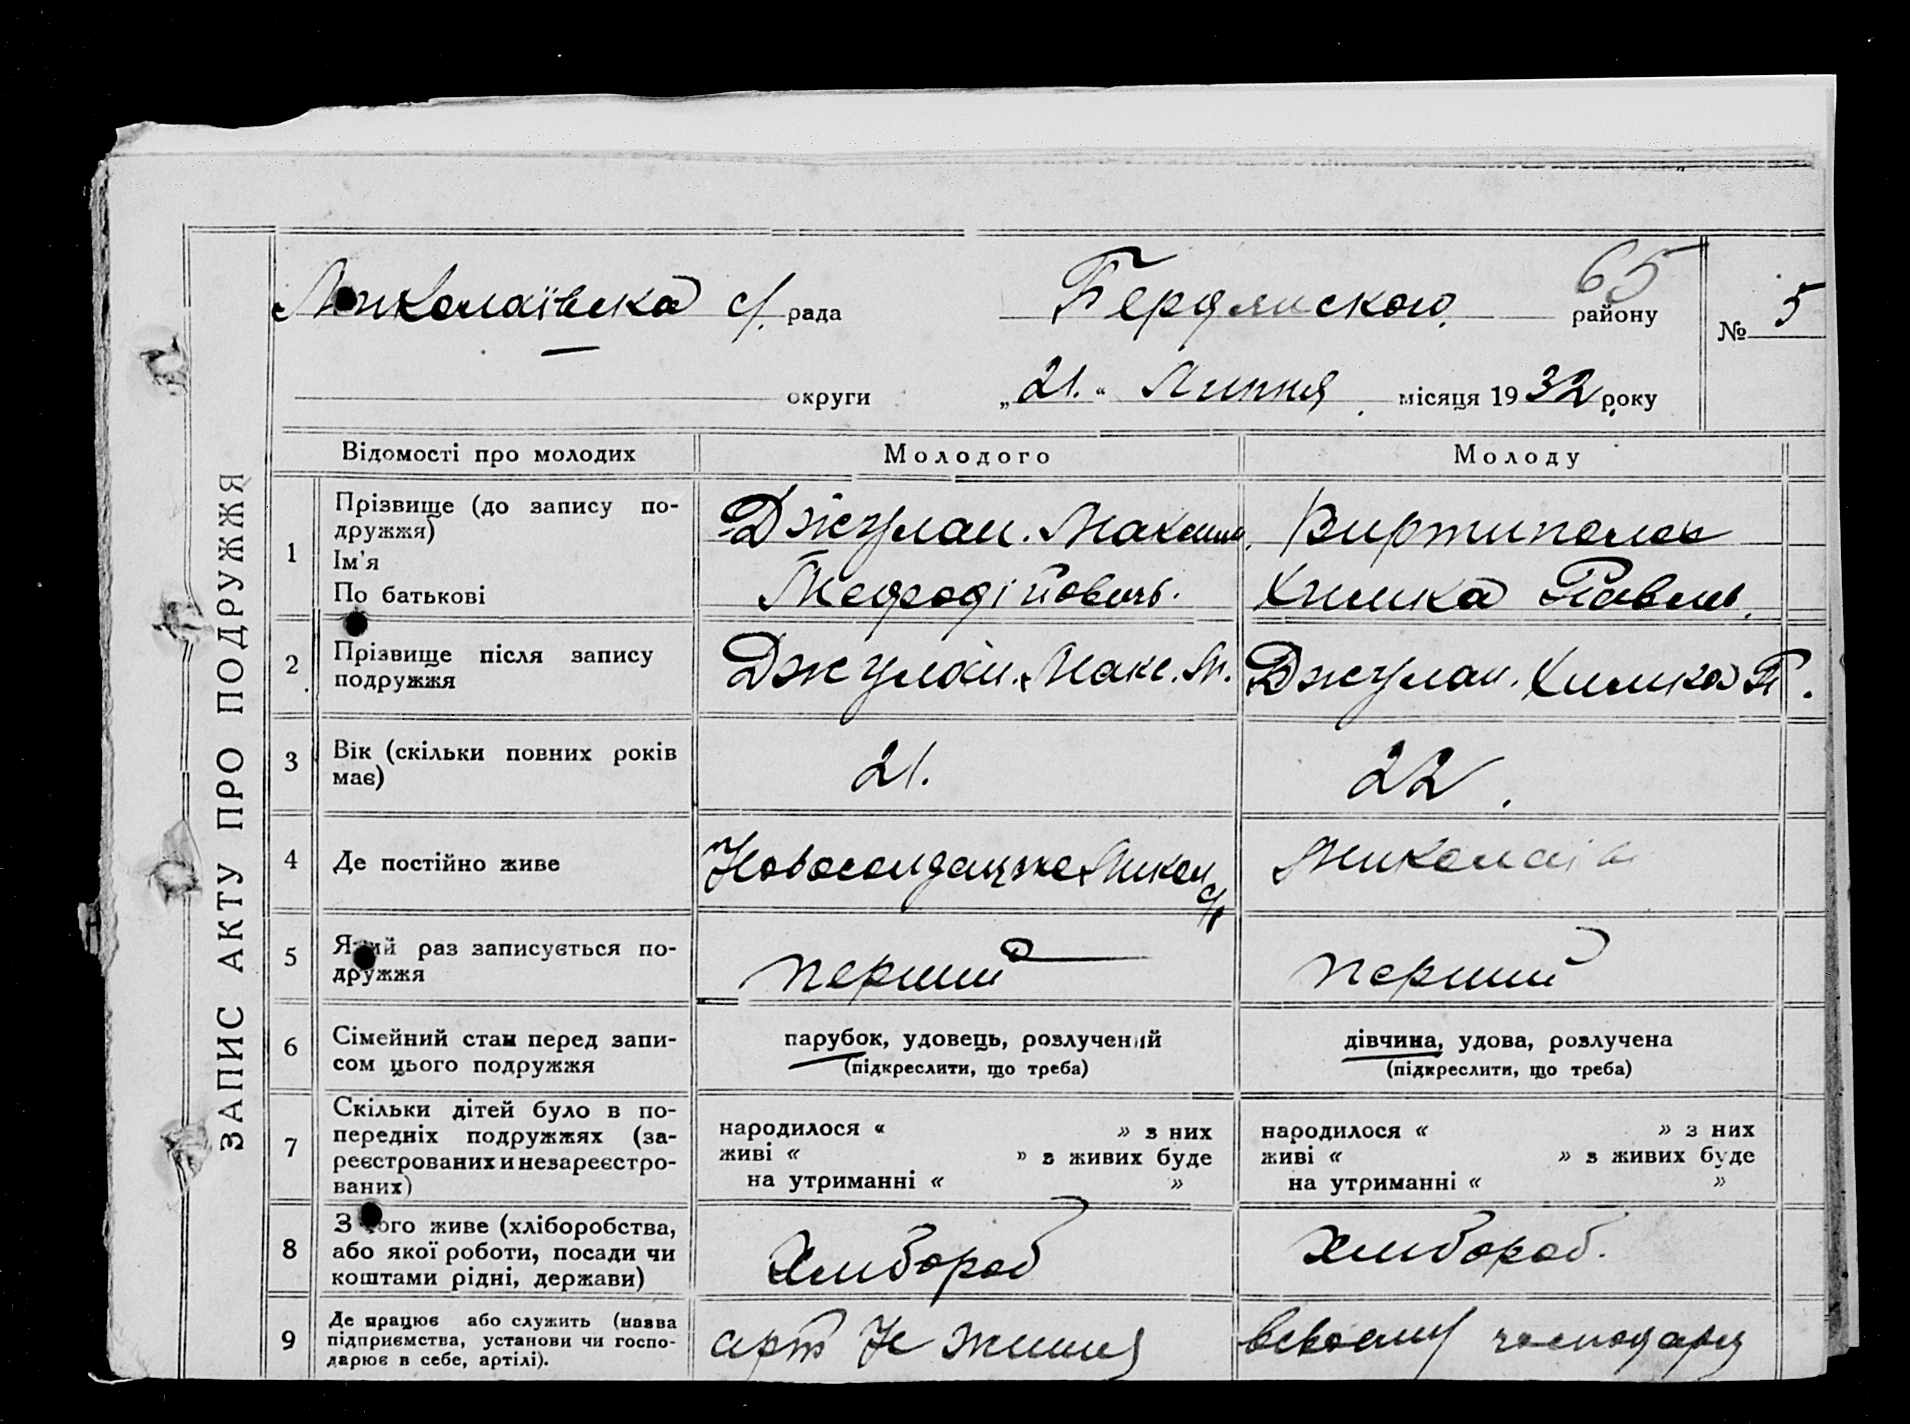 ЗАПИС АКТУ ПРО ПОДРУЖЖЯ
65
Миколаївська с/. рада Бердянского району № 5
округи „21.“ Липня місяця 1932 року
Відомості про молодих Молодого Молоду
1 Прізвище (до запису по-
дружжя)
Ім'я
По батькові
Джулай. Максим.
Мефодійович.
Химка Павлів.
2 Прізвище після запису
подружжя
Джулай. Макс. М. Джулай. Химка П.
3 Вік (скільки повних років
має)
21. 22.
4 Де постійно живе
Микол с/р
Миколаїв
5 Який раз записується по-
дружжя
перший перший
6 Сімейний стан перед запи-
сом цього подружжя
парубок, удовець, розлучений
(підкреслити, що треба)
дівчина, удова, розлучена
(підкреслити, що треба)
7 Скільки дітей було в по-
передніх подружжях (за-
реєстрованих и незареєстро-
ваних)
народилося « » з них
живі « » з живих буде
на утриманні « »
народилося « » з них
живі « » з живих буде
на утриманні « »
8 З чого живе (хліборобства,
або якої роботи, посади чи
коштами рідні, держави)
Хлибороб Хлибороб.
9 Де працює або служить (назва
підприємства, установи чи госпо-
дарює в себе, артілі).
арт Н Жития
всвоему господару